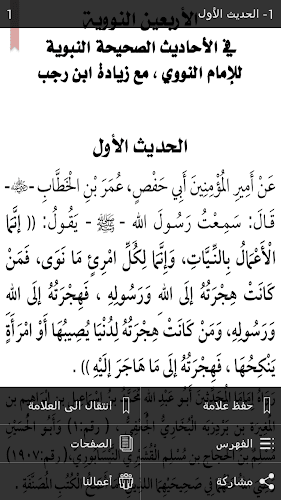 1- الحديث الأول
1
الأربعين النووية
في الأحاديث الصحيحة النبوية
للإمام النووي ، مع زيادة ابن رجب
الحديث الأول
عَنْ أَمِيرِ المُؤْمِنِينَ أَبِي حَفْصٍ، عُمَرَ بْنِ الْخَطَّابِ -رضي الله عنه-
قَالَ: سَمِعْتُ رَسُولَ الله - ﷺ - يَقُولُ: (( إِنَّمَا
الْأَعْمَالُ بِالنِّيَّاتِ، وَإِنَّمَا لِكُلِّ امْرِئٍ مَا نَوَى، فَمَنْ
كَانَتْ هِجْرَتُهُ إِلَى اللهِ وَرَسُولِهِ ، فَهِجْرَتُهُ إِلَى اللهِ
وَرَسُولِهِ، وَمَنْ كَانَتْ هِجْرَتُهُ لِدُنْيَا يُصِيبُهَا أَوْ امْرَأَةٍ
يَنْكِحُهَا ، فَهِجْرَتُهُ إِلَى مَا هَاجَرَ إِلَيْهِ )) .
حفظ علامة
انتقال الى العلامة
الفهرس
الصفحات
مشاركة
أعمالنا